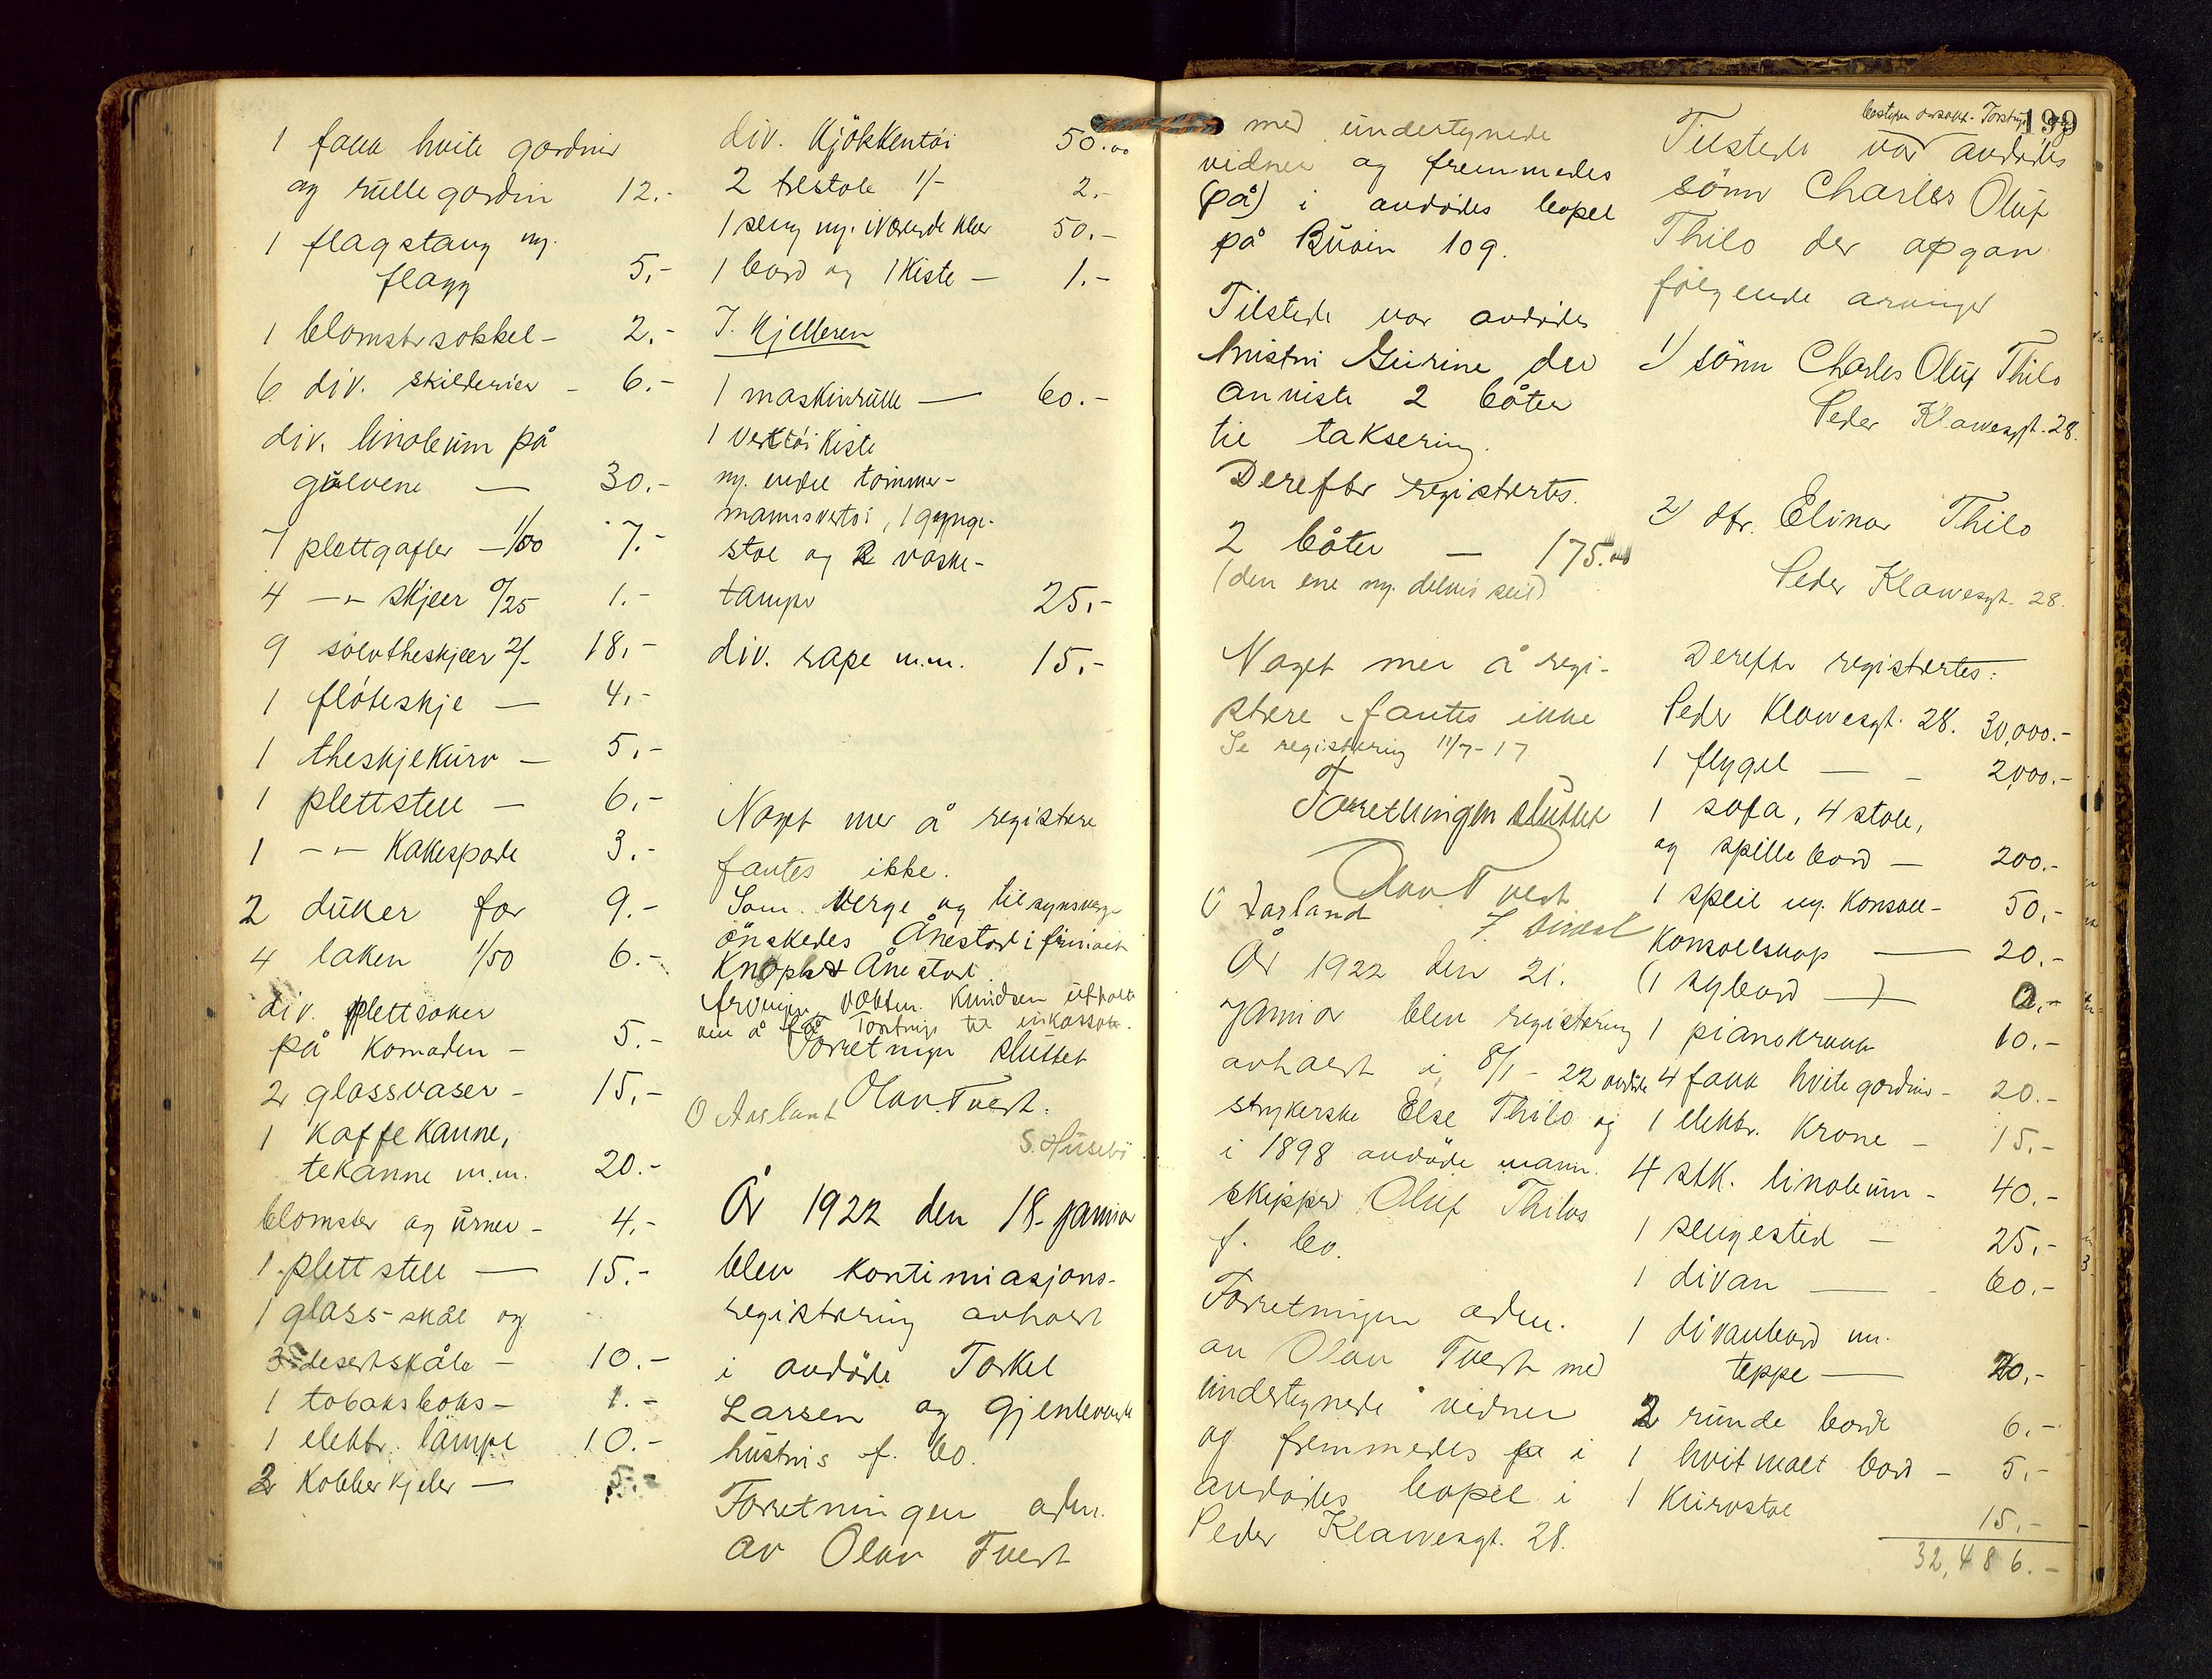 1 fakk hvite gardiner
og rullegardin 12.-
1 flagstang m.
flagg 5,-
1 blomstersokkel - 2.-
6 div. skilderier - 6.-
div. linoleum på
gulvene — 30.-
7 plettgafler - 1/00 7.-
4 -"- skjeer 0/25 1.-
9 sølvtheskjeer 2/- 18,-
1 fløteskje — 4,-
1 theskjekurv — 5,-
1 plettstell — 6,-
1 -"- Kakespade 3.-
2 duker for 9.-
4 laken 1/50 6.-
div. plettsaker
på komoden - 5.-
2 glassvaser - 15,-
1 Kaffekanne,
tekanne m.m. 20.-
blomster og urner - 4,-
1 plettstell — 15.-
1 glass-skål og
3 desertskåle - 10.-
1 tobaksboks - 1.-
1 elektr. lampe 10.-
2 Kobberkjeler — 5.-
div. Kjökkentöi 50.00
2 trestole 1/- 2.-
1 seng m. iværende klær 50.-
1 bord og 1 Kiste — 1.-
I. Kjelleren
1 maskinrulle — 60.-
1 Verktöi Kiste
m. endel tömmer-
mannsvertöi, 1 gynge-
stol og 2 vaske-
tamper 25,-
div. rape m.m. 15,-
Noget mer å registere
fantes ikke.
Som verge og tilsynsverge
önskedes Ånestad i firmaet
Knoph & Ånestad.
Arvingen Knudsen
Forretningen sluttet
Olav Tveit.
O Aarland
S. Husebö
År 1922 den 18. januar
blev kontinuasjons-
registering avholdt
i avdöde Torkel
Larsen og gjenlevende
hustrus f. bo.
Forretningen adm.
av Olav Tveit
med undertegnede
vidner og fremmedes
(på) i avdödes bopel
på Buöin 109.
Tilstede var avdödes
hustru Gurine der
anviste 2 båter
til taksering.
Derefter registertes.
2 båter — 175.00
(den ene m. delvis seil)
Noget mer å regi-
stere fantes ikke
Se registering 11/7-17
Forretningen sluttet
Olav Tveit
O Aarland
År 1922 den 21.
januar blev registering
avholdt i 8/1-22 avdöde
strykerske Else Thilo og
i 1898 avdöde mann
skipper Oluf Thilos
f. bo.
Forretningen adm.
av Olav Tveit med
undertegnede vidner
og fremmedes på i
avdödes bopel i
Peder Klawesgt. 28.
199
Tilstede var avdödes
sönn Charles Oluf
Thilo der opgav
fölgende arvinger
1) sönn Charles Oluf Thilo
Peder Klawesgt. 28.
2) dtr. Elinor Thilo
Peder Klawesgt. 28.
Derefter registertes:
Peder Klawesgt. 28. 30,000.-
1 flygel — - 2,000.-
1 sofa, 4 stole,
og spillebord — 200.-
1 speil m. Konsoll - 50,-
Konsollskap — 20.-
(1 sybord —) 0,-
1 pianokrakk 10.-
4 fakk hvite gardiner - 20.-
1 elektr. Krone - 15,-
4 stk. linoleum - 40.-
1 sengested - 25,-
1 divan — - 60.-
1 divanbord m.
teppe — 20,-
2 runde borde 6.-
1 hvitmalt bord - 5,-
1 Kurvstol 15.-
32,486.-